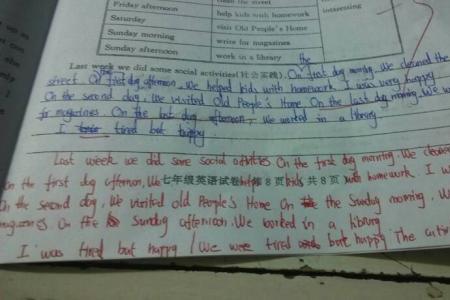 Friday afternoon
help kids with homework
interesting
Saturday
visit Old People's Home
Sunday morning
write for magazines
Sunday afternoon
work in a library
Last week we did some social activities(社会实践). On the first day morning. We cleaned the
street On the first day afternoon, We helped kids with homework. I was very happy
On the second day, We visited Old People's Home On the last day morning, We w
for magazines On the last day afternoon, We worked in a library
I tired but happy
Last week we did some social activities On the first day morning. We cleaned
on the first day afternoon, We kids with homework. I w
七年级英语试卷 第 8 页 共 8 页
On the second day, We visited Old People's Home On the Sunday morning, W
magazines. On the Sunday afternoon. We worked in a library
I was tired but happy We were tired but happy The activ